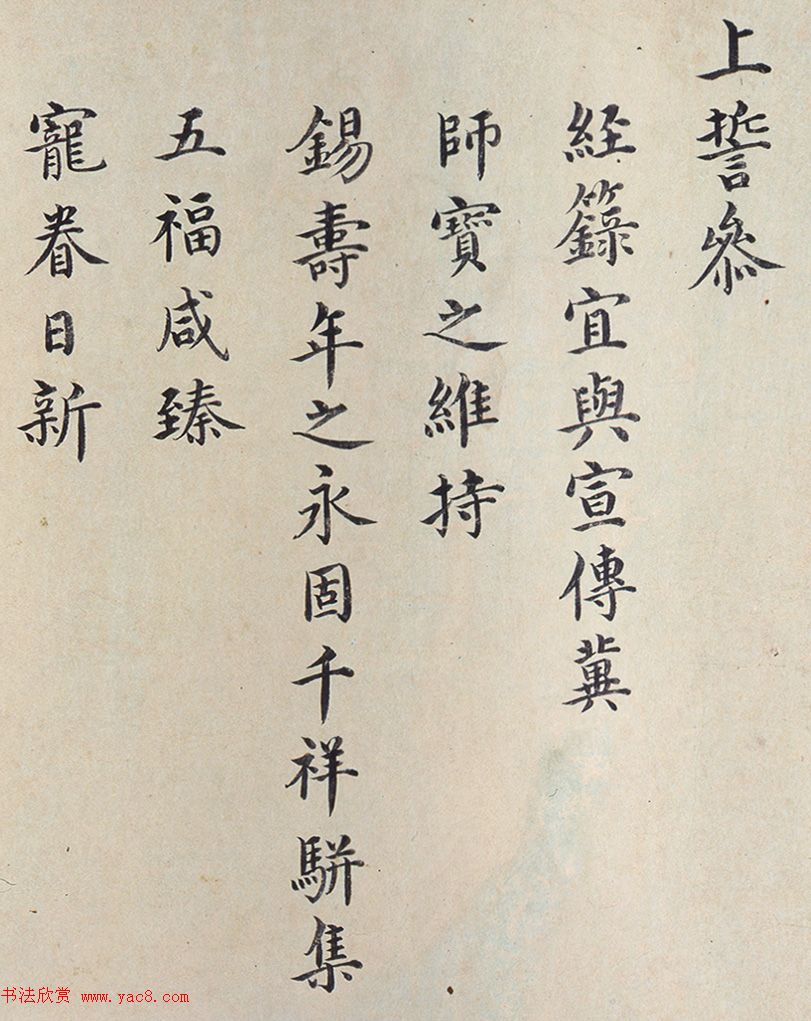 上誓叅
経籙宜與宣傳冀
師寳之維持
錫壽年之永固千祥駢集
五福咸臻
寵眷日新
书法欣赏 www.yac8.com